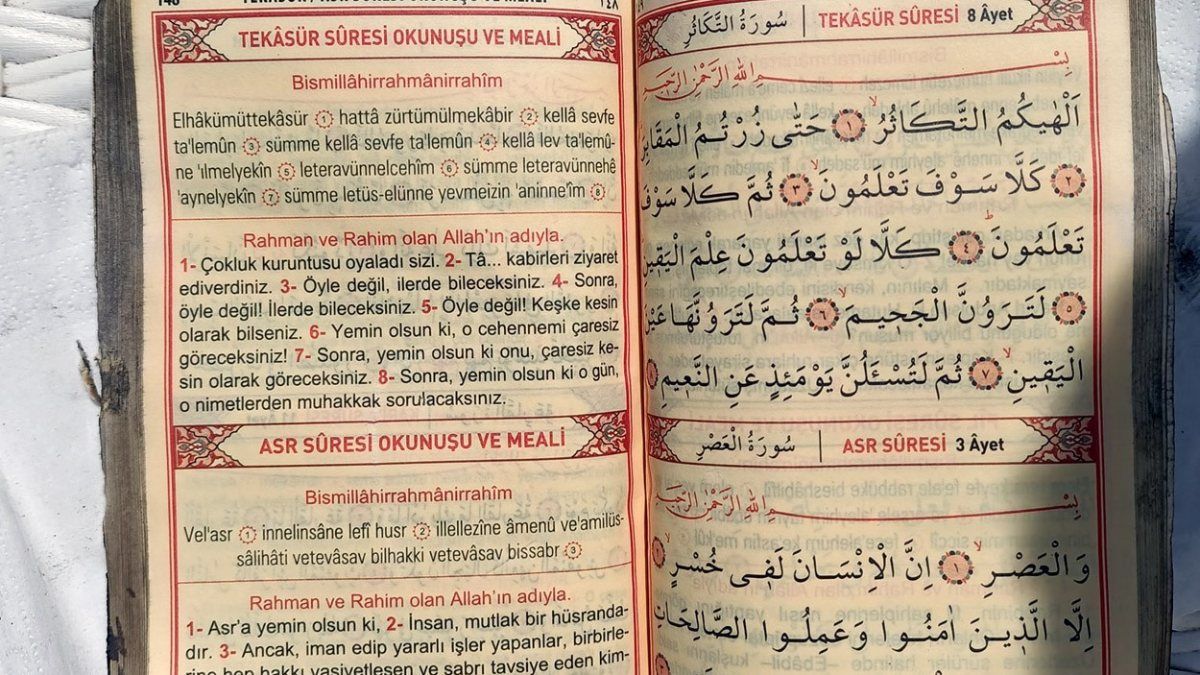 TEKÂSÜR SÛRESİ OKUNUŞU VE MEALİ
Bismillâhirrahmânirrahîm
Elhâkümüttekâsür ① hattâ zürtümülmekâbir ② kellâ sevfe
ta'lemûn ③ sümme kellâ sevfe ta'lemûn ④ kellâ lev ta'lemû-
ne 'ılmelyekîn ⑤ leteravünnelcehîm ⑥ sümme leteravünnehê
'aynelyekîn ⑦ sümme letüs-elünne yevmeizin 'aninne'îm ⑧
Rahman ve Rahim olan Allah'ın adıyla.
1- Çokluk kuruntusu oyaladı sizi. 2- Tâ... kabirleri ziyaret
ediverdiniz. 3- Öyle değil, ilerde bileceksiniz. 4- Sonra,
öyle değil! İlerde bileceksiniz. 5- Öyle değil! Keşke kesin
olarak bilseniz. 6- Yemin olsun ki, o cehennemi çaresiz
göreceksiniz! 7- Sonra, yemin olsun ki onu, çaresiz ke-
sin olarak göreceksiniz. 8- Sonra, yemin olsun ki o gün,
o nimetlerden muhakkak sorulacaksınız.
ASR SÛRESİ OKUNUŞU VE MEALİ
Bismillâhirrahmânirrahîm
Vel'asr ① innelinsâne lefî husr ② illellezîne âmenû ve'amilüs-
sâlihâti vetevâsav bilhakki vetevâsav bissabr ③
Rahman ve Rahim olan Allah'ın adıyla.
1- Asr'a yemin olsun ki, 2- İnsan, mutlak bir hüsranda-
dır. 3- Ancak, iman edip yararlı işler yapanlar, birbirle-
rine hep hakkı vasiyetleşen ve sabrı tavsiye eden kim-
سُورَةُ التَّكَاثُرِ | TEKÂSÜR SÛRESİ 8 Âyet
بِسْمِ اللّٰهِ الرَّحْمٰنِ الرَّحِيمِ
اَلْهٰيكُمُ التَّكَاثُرُۙ ﴿١﴾ حَتّٰى زُرْتُمُ الْمَقَابِرَ
﴿٢﴾ كَلَّا سَوْفَ تَعْلَمُونَۙ ﴿٣﴾ ثُمَّ كَلَّا سَوْفَ
تَعْلَمُونَۜ ﴿٤﴾ كَلَّا لَوْ تَعْلَمُونَ عِلْمَ الْيَق۪ينِ
﴿٥﴾ لَتَرَوُنَّ الْجَح۪يمَۙ ﴿٦﴾ ثُمَّ لَتَرَوُنَّهَا عَيْنَ
الْيَق۪ينِۙ ﴿٧﴾ ثُمَّ لَتُسْـَٔلُنَّ يَوْمَئِذٍ عَنِ النَّع۪يمِ
سُورَةُ الْعَصْرِ | ASR SÛRESİ 3 Âyet
بِسْمِ اللّٰهِ الرَّحْمٰنِ الرَّحِيمِ
وَالْعَصْرِۙ ﴿١﴾ اِنَّ الْاِنْسَانَ لَف۪ي خُسْرٍۙ
اِلَّا الَّذ۪ينَ اٰمَنُوا وَعَمِلُوا الصَّالِحَاتِ